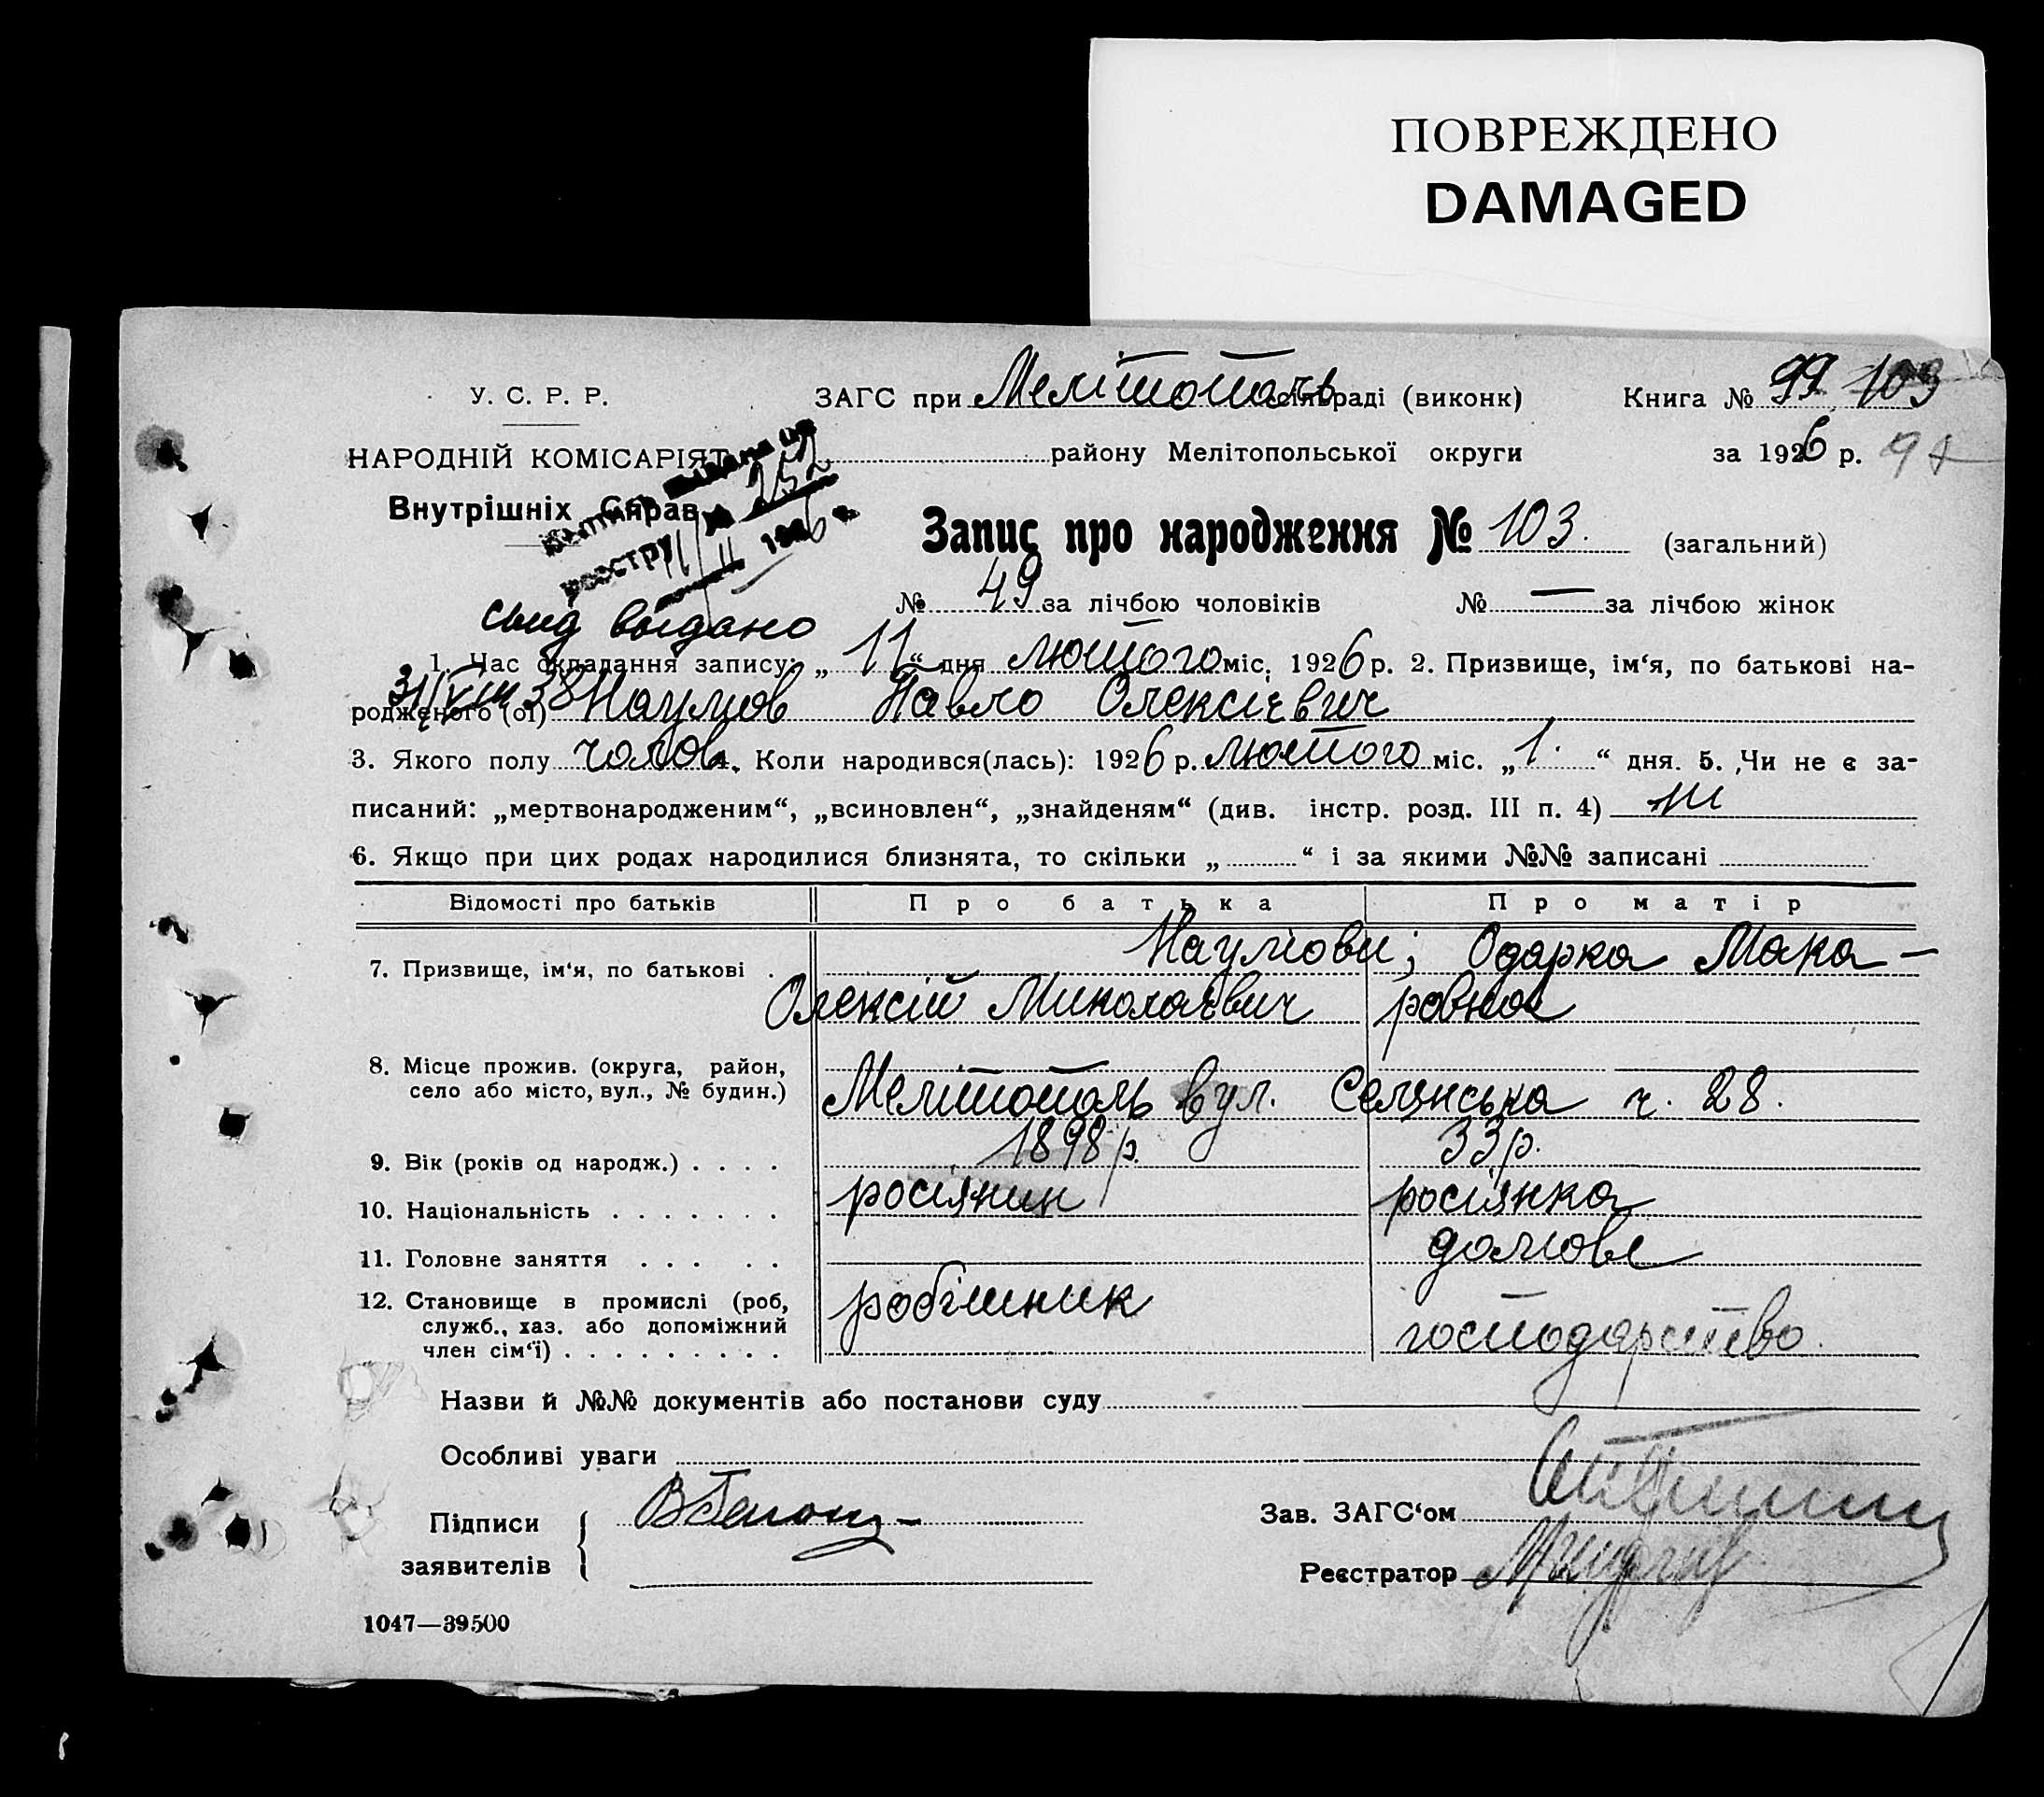 ПОВРЕЖДЕНО
DAMAGED
У. С. Р. Р.
ЗАГС при Мелітополь сільраді (виконк)
Книга № 99 103
НАРОДНІЙ КОМІСАРІЯТ
района Мелітопольської округи
за 1926 р. 94
Внутрішніх Справ
реєстру № 252
11/II 1926 р.
Запис про народження № 103. (загальний)
№ 49 за лічбою чоловіків № — за лічбою жінок
свид выдано
31/VIII 38
1. Час складання запису: „11“ дня лютого міс. 1926 р. 2. Призвище, ім‘я, по батькові на-
родженого (ої) Наумов Павло Олексієвич
3. Якого полу чолов. 4. Коли народився(лась): 1926 р. лютого міс. „1.“ дня. 5. Чи не є за-
писаний: „мертвонародженим“, „всиновлен“, „знайденям“ (див. інстр. розд. III п. 4) ні
6. Якщо при цих родах народилися близнята, то скільки „ “ і за якими №№ записані
Відомості про батьків Про батька Про матір
7. Призвище, ім‘я, по батькові . Наумови; Одарка Мака-
Олексій Миколаєвич ровна
8. Місце прожив. (округа, район,
село або місто, вул., № будин.) Мелітополь вул. Селянська ч. 28.
9. Вік (років од народж.) . . . . 1898 р. 33 р.
10. Національність . . . . . . . росіянин росіянка
11. Головне заняття . . . . . домове
12. Становище в промислі (роб,
служб., хаз. або допоміжний
член сім‘ї) . . . . . . . . . робітник господарство.
Назви й №№ документів або постанови суду
Особливі уваги
Підписи
заявителів
Зав. ЗАГС‘ом
Реєстратор
1047—39500